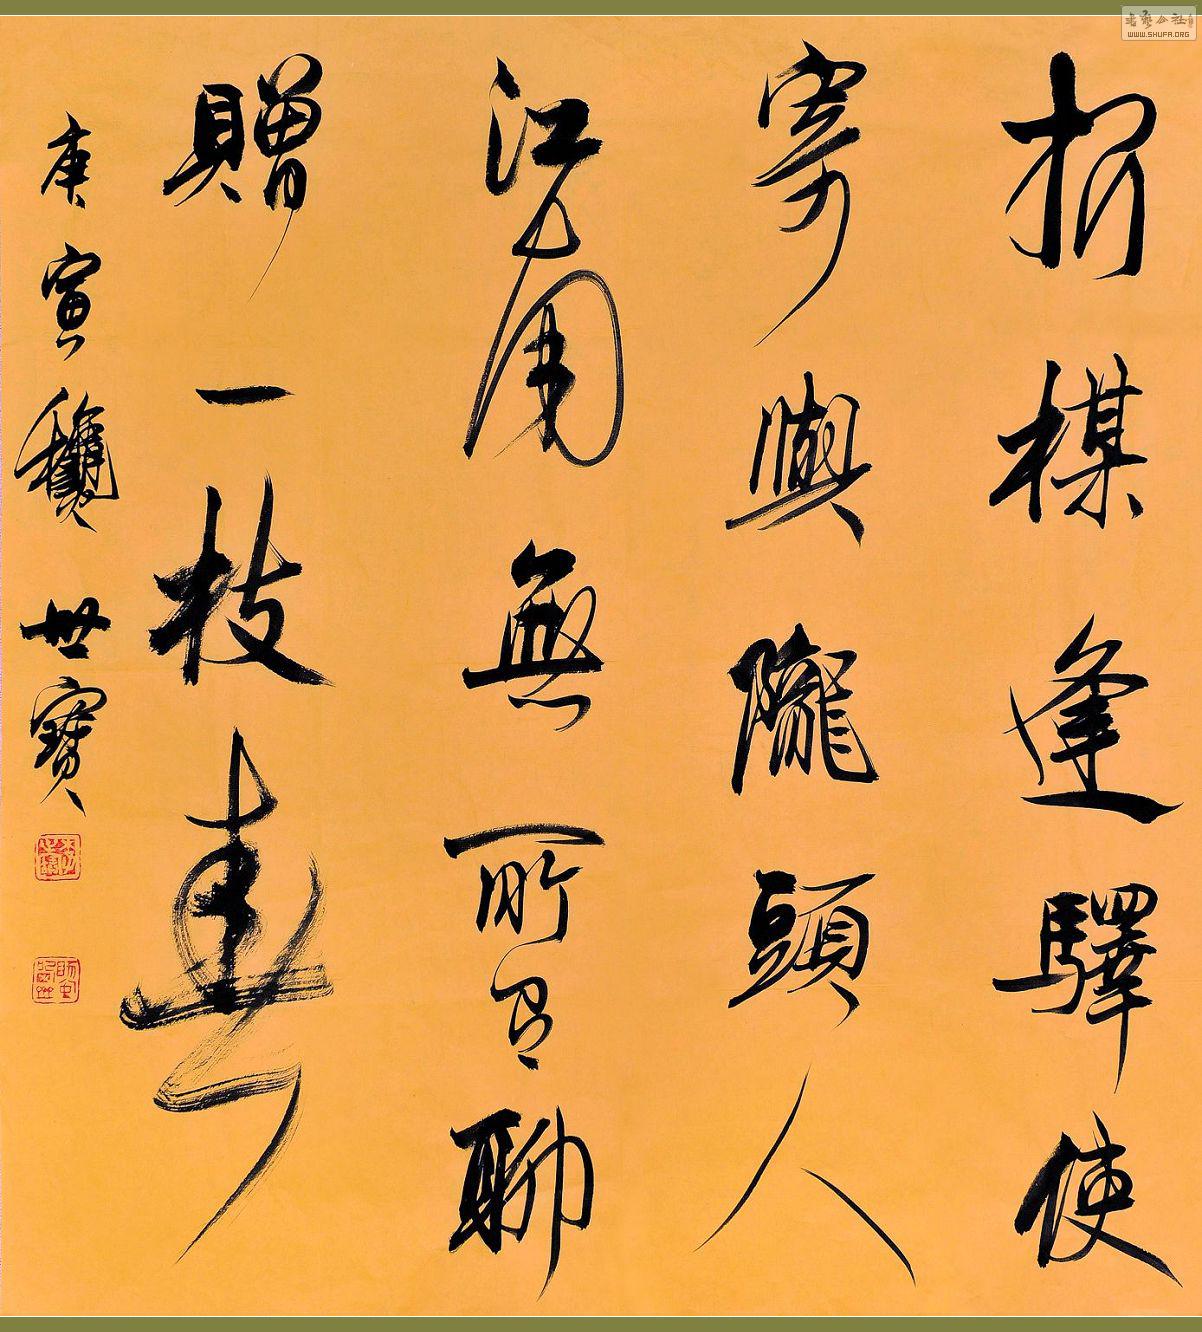 折楳逢驛使
寄與隴頭人
江南無所有聊
贈一枝春
庚寅龝世寶
書藝公社
WWW.SHUFA.ORG